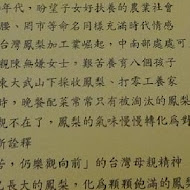 年代，盼望子女好扶養的農業社會
腰、罔市等命名同樣充滿時代情感
台灣鳳梨加工業崛起，中南部處處可
親陳無嫌女士，艱苦養育八個孩子
東大武山下採收鳳梨、打零工養家
時，晚餐配菜常常只有被淘汰的鳳梨
親不在了，鳳梨的氣味慢慢轉化為對
新詮釋
苦，仍樂觀向前」的台灣母親精神
己長大的鳳梨，化為顆顆飽滿的鳳